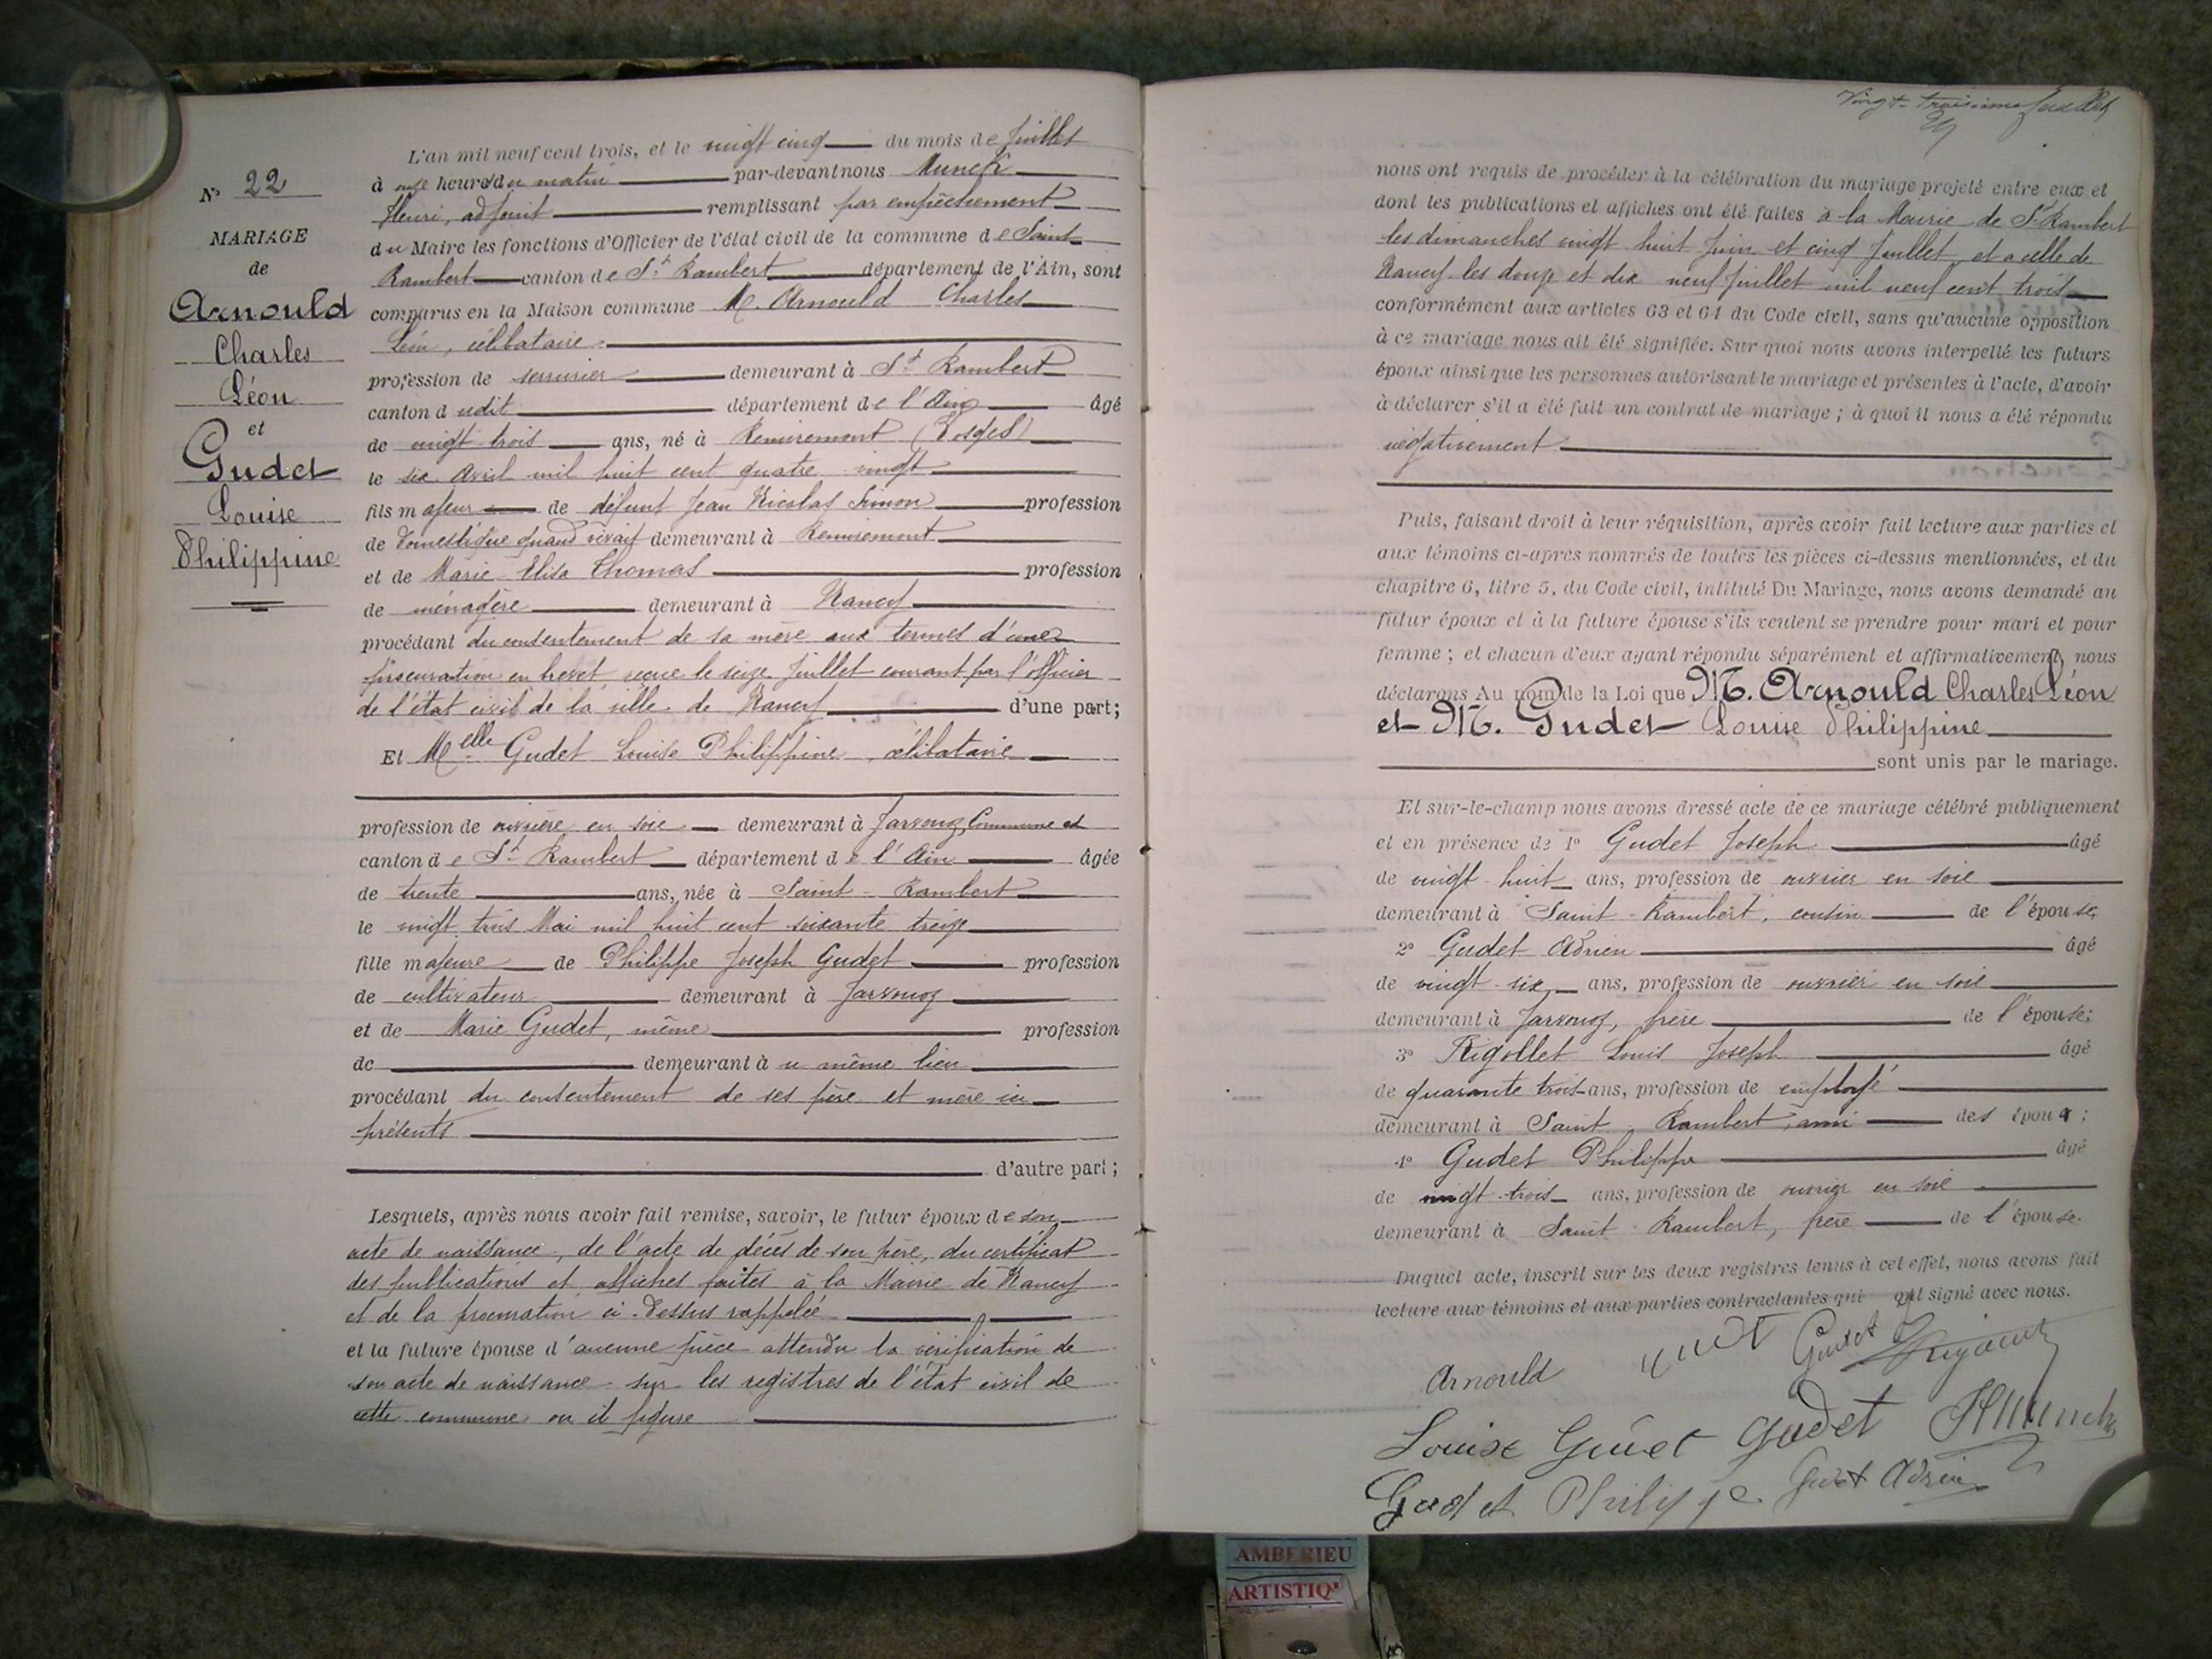 N° 22
MARIAGE
de
Arnould
Charles
Léon
et
Gudet
Louise
Philippine
L'an mil neuf cent trois, et le vingt cinq du mois de Juillet
à onze heures du matin par-devant nous Munch
Henri, adjoint remplissant par empêchement
du Maire les fonctions d'Officier de l'état civil de la commune de Saint
Rambert canton de St Rambert département de l'Ain, sont
comparus en la Maison commune M. Arnould Charles
Léon, célibataire
profession de serrurier demeurant à St Rambert
canton dudit département de l'Ain âgé
de vingt trois ans, né à Remiremont (Vosges)
le six Avril mil huit cent quatre vingt
fils majeur de défunt Jean Nicolas Simon profession
de domestique quand vivait demeurant à Remiremont
et de Marie Elisa Thomas profession
de ménagère demeurant à Nancy
procédant du consentement de sa mère aux termes d'une
procuration en brevet reçue le seize Juillet courant par l'officier
de l'état civil de la ville de Nancy d'une part;
Et Melle Gudet Louise Philippine, célibataire
profession de ouvrière en soie demeurant à Javornoz Commune et
canton de St Rambert département de l'Ain âgée
de trente ans, née à Saint-Rambert
le vingt trois Mai mil huit cent soixante treize
fille majeure de Philippe Joseph Gudet profession
de cultivateur demeurant à Javornoz
et de Marie Gudet, même profession
de demeurant à u même lieu
procédant du consentement de ses père et mère ici
présents
d'autre part;
Lesquels, après nous avoir fait remise, savoir, le futur époux de son
acte de naissance, de l'acte de décès de son père, du certificat
des publications et affiches faites à la Mairie de Nancy
et de la procuration ci-dessus rappelée
et la future épouse d'aucune pièce attendu la vérification de
son acte de naissance sur les registres de l'état civil de
cette commune ou il figure
Vingt-troisième feuillet
nous ont requis de procéder à la célébration du mariage projeté entre eux et
dont les publications et affiches ont été faites à la Mairie de St Rambert
les dimanches vingt huit Juin et cinq Juillet et a celle de
Nancy les douze et dix neuf Juillet mil neuf cent trois
conformément aux articles 63 et 64 du Code civil, sans qu'aucune opposition
à ce mariage nous ait été signifiée. Sur quoi nous avons interpellé les futurs
époux ainsi que les personnes autorisant le mariage et présentes à l'acte, d'avoir
à déclarer s'il a été fait un contrat de mariage; à quoi il nous a été répondu
négativement
Puis, faisant droit à leur réquisition, après avoir fait lecture aux parties et
aux témoins ci-après nommés de toutes les pièces ci-dessus mentionnées, et du
chapitre 6, titre 5, du Code civil, intitulé Du Mariage, nous avons demandé au
futur époux et à la future épouse s'ils veulent se prendre pour mari et pour
femme; et chacun d'eux ayant répondu séparément et affirmativement, nous
déclarons Au nom de la Loi que M. Arnould Charles Léon
et M. Gudet Louise Philippine
sont unis par le mariage.
Et sur-le-champ nous avons dressé acte de ce mariage célébré publiquement
et en présence de 1° Gudet Joseph âgé
de vingt-huit ans, profession de ouvrier en soie
demeurant à Saint-Rambert, cousin de l'épouse;
2° Gudet Adrien âgé
de vingt-six ans, profession de ouvrier en soie
demeurant à Javornoz, frère de l'épouse;
3° Rigollet Louis Joseph âgé
de quarante trois ans, profession de employé
demeurant à Saint-Rambert, ami des époux;
4° Gudet Philippe âgé
de vingt-trois ans, profession de ouvrier en soie
demeurant à Saint-Rambert, frère de l'épouse.
Duquel acte, inscrit sur les deux registres tenus à cet effet, nous avons fait
lecture aux témoins et aux parties contractantes qui ont signé avec nous.
Arnould Gudet
Louise Gudet Gudet HMunch
Gudet Philippe Gudet Adrien
AMBERIEU
ARTISTIQ